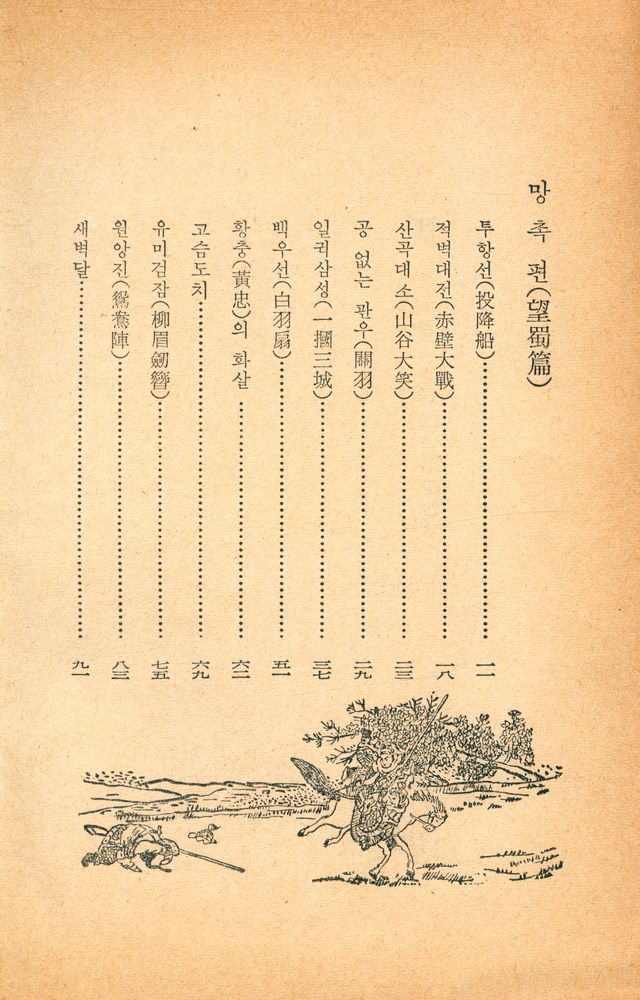 망촉편(望蜀篇)
투항선(投降船)…………一一
적벽대전(赤壁大戰)…………一八
산곡대소(山谷大笑)…………二三
공 없는 관우(關羽)…………二九
일괵삼성(一摑三城)…………三七
백우선(白羽扇)…………五一
황충(黃忠)의 화살…………六二
고슴도치…………六九
유미검잠(柳眉劒簪)…………七五
원앙진(鴛鴦陣)…………八三
새벽달…………九一